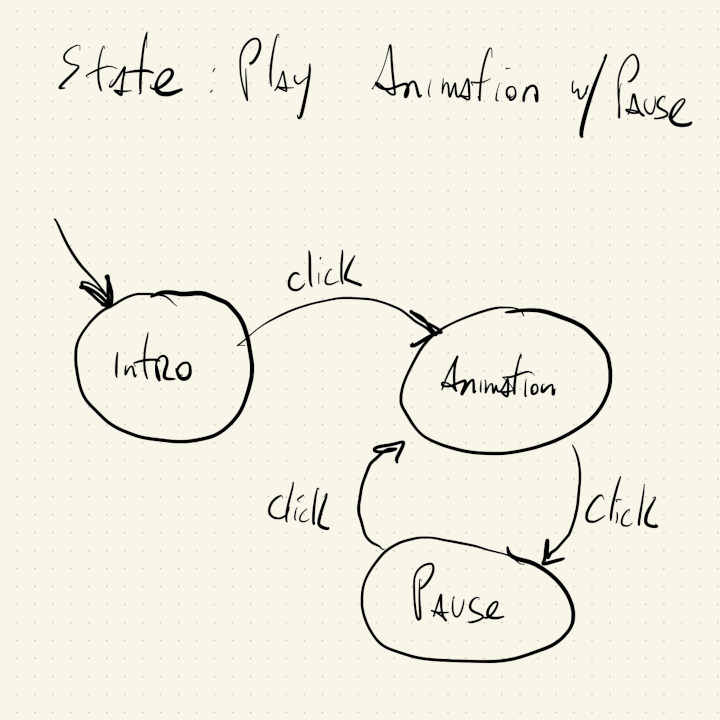 State: Play Animation w/ Pause
click
Intro
Animation
click
click
Pause